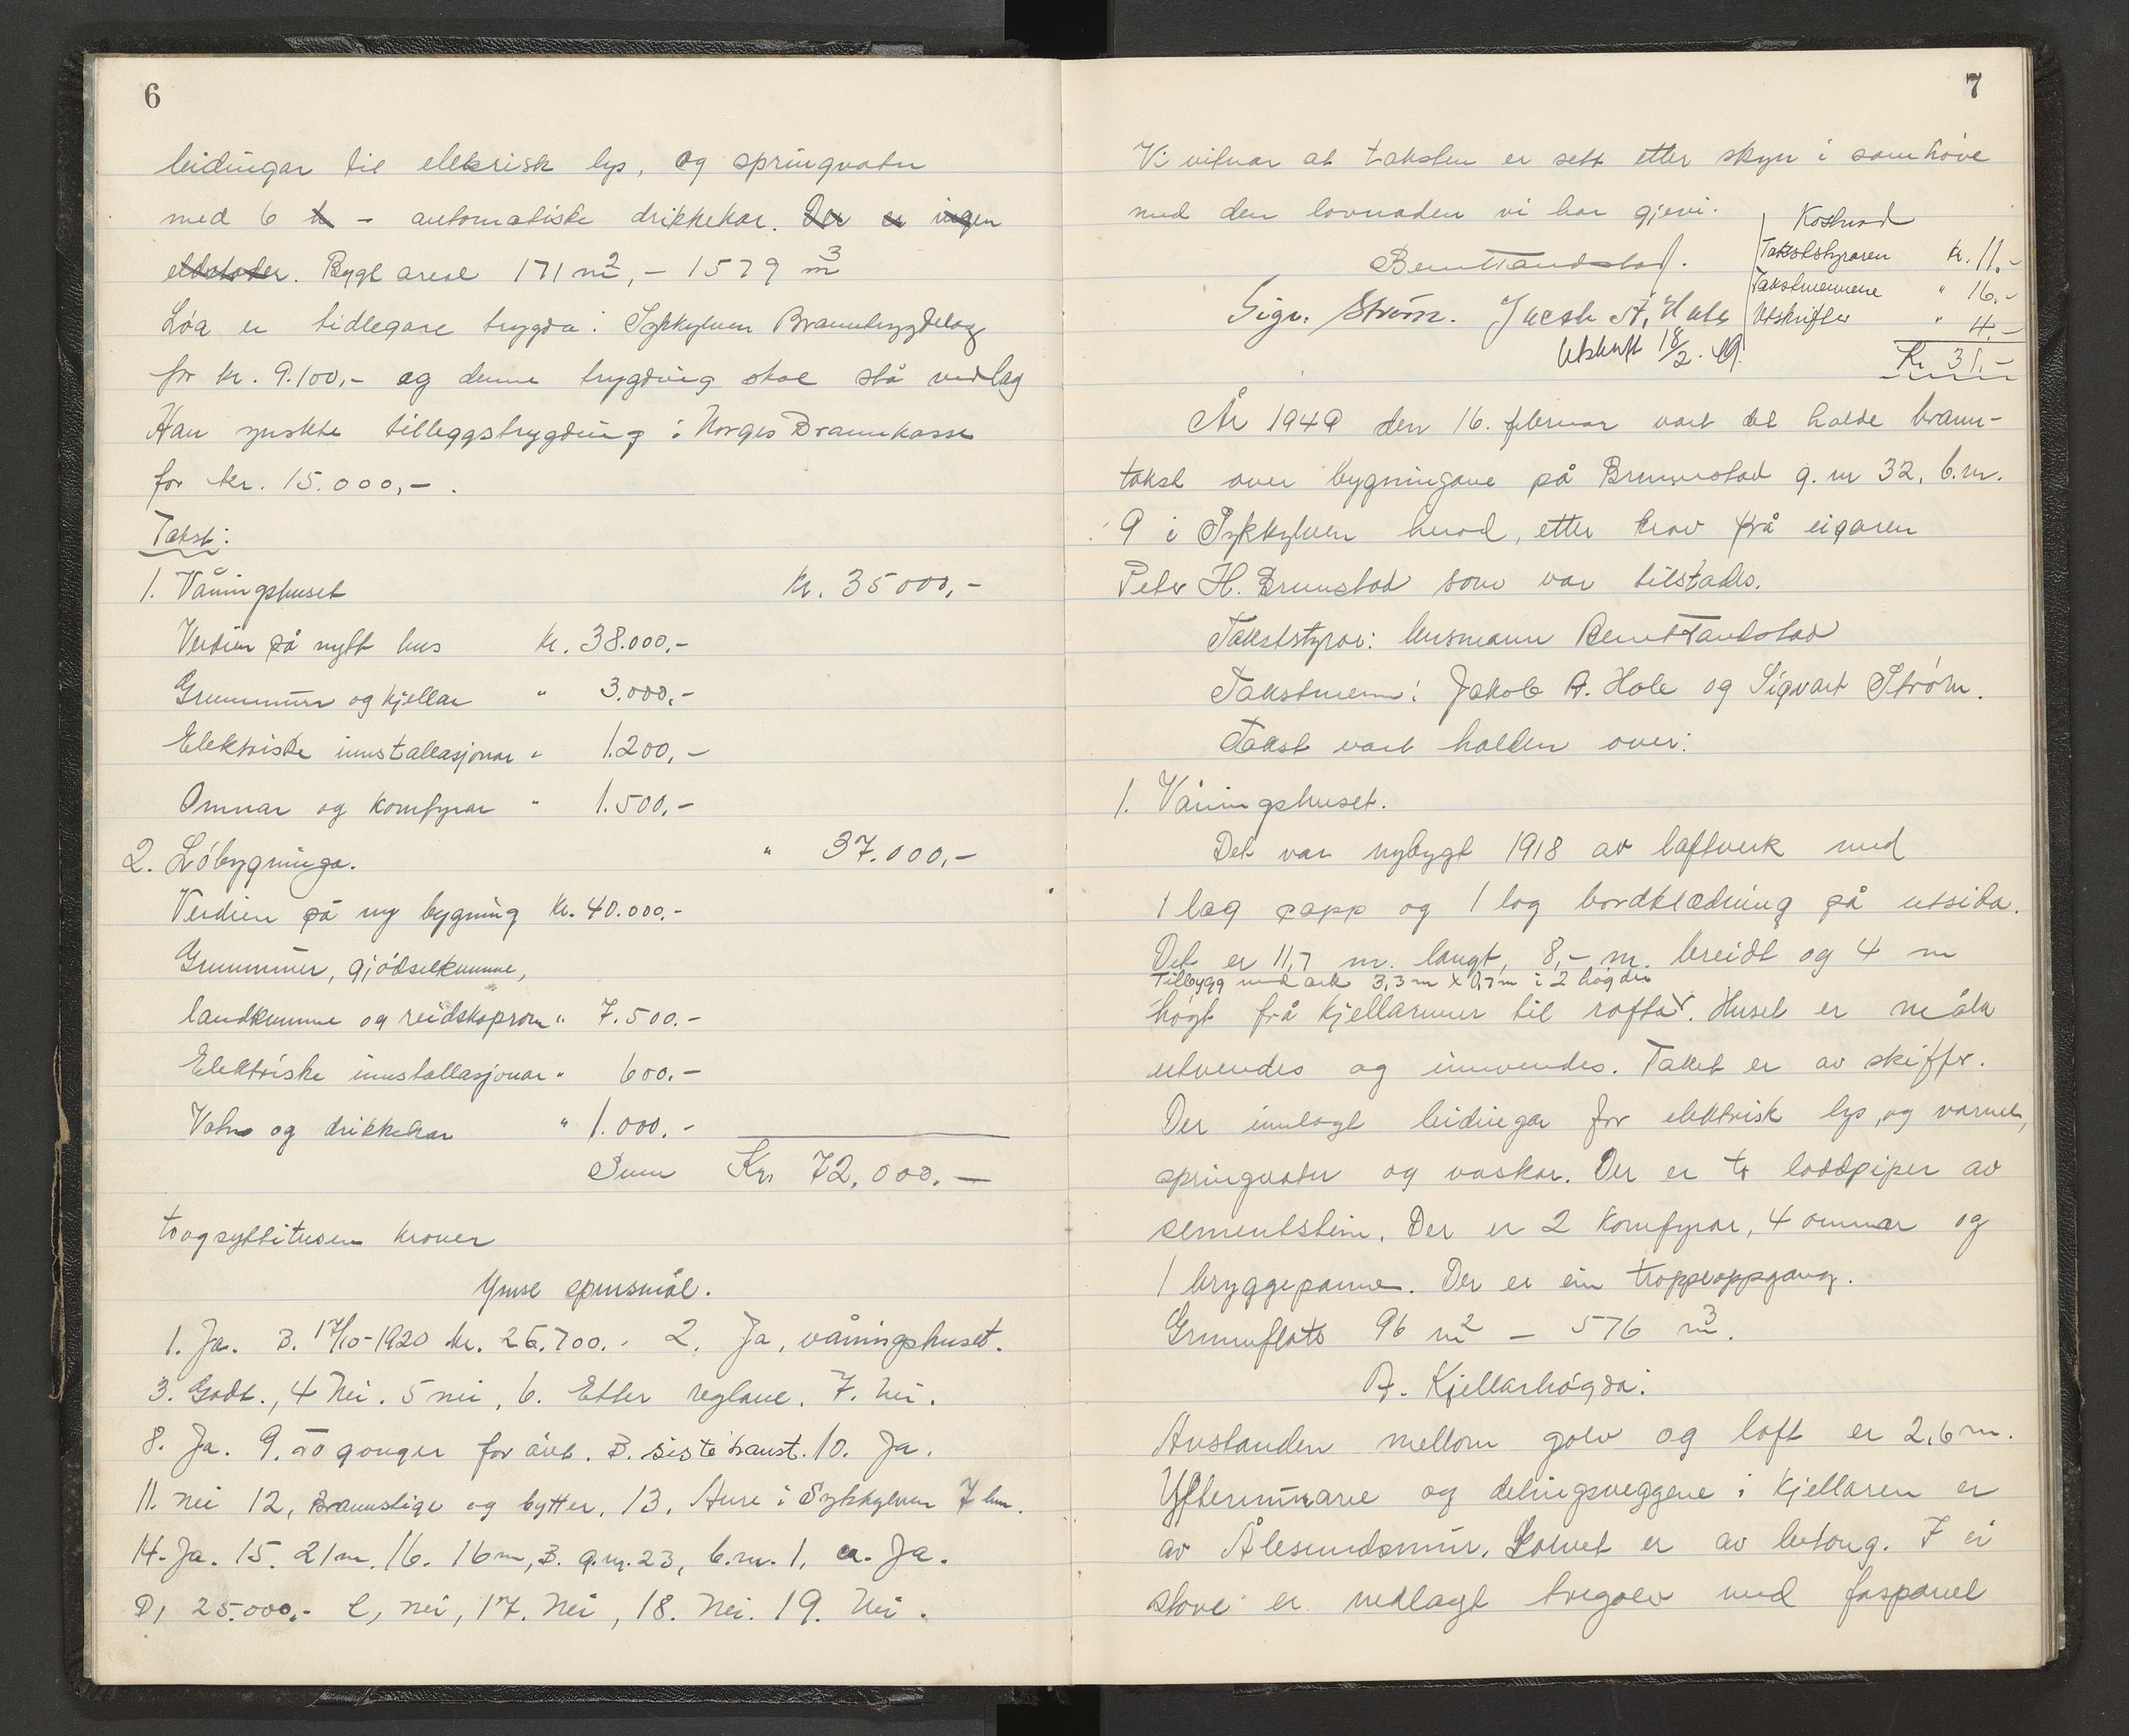 6
leidingar til elekrisk lys, og springvatn
med 6 - automatiske drikkekar. Der er ingen
eldstader. Bygt areal 171 m2, - 1579 m3
Løa er tidlegare trygda i Sykkylven Branntrygdelag
for kr. 9.100,- og denne trygding skal stå vedlag
Han ynskte tilleggstrygding i Norges Brannkasse
for kr. 15.000,-.
Takst:
1. Våningshuset kr. 35000,-
Verdien på nytt hus kr. 38.000,-
Grunnmur og kjellar " 3.000,-
Elektriske innstallasjonar " 1.200,-
Omnar og komfyrar " 1.500,-
2. Løbygninga. " 37.000,-
Verdien på ny bygning kr. 40.000,-
Grunnmur, gjødselkumme,
landkumme og reidskapsrom " 7.500.-
Elektriske innstallasjonar " 600.-
Vatn og drikkekar " 1.000.-
Sum Kr. 72.000.-
toogsyttitusen kroner
Ymse spursmål.
1. Ja. B. 17/10-1920 kr. 26.700.- 2. Ja, våningshuset.
3. Godt., 4 Nei. 5 nei, 6. Etter reglane. 7. Nei.
8. Ja. 9. to gonger for året. B. siste haust. 10. Ja.
11. nei 12, Brannstige og bytter, 13, Aure i Sykkylven 7 km.
14. Ja. 15. 21m. 16. 16m, B. g.nr. 23, b.nr. 1, a. Ja.
D, 25.000,- E, nei, 17. Nei, 18. Nei. 19. Nei.
7
Vi vitnar at taksten er sett etter skyn i samhøve
med den lovnaden vi har gjevi.
Kostnad
Takststyraren kr. 11.-
Takstmennene " 16.-
Utskrifter " 4.-
Kr. 31.-
Bernt Tandstad.
Sigv. Strøm. Jacob A. Hole
Utskrift 18/2. 49.
År 1949 den 16. februar vart det halde brann-
takst over bygningane på Brunstad g.nr 32, b.nr.
9 i Sykkylven herad, etter krav frå eigaren
Peter H. Brunstad som var tilstades.
Takststyrar: lensmann Bernt Tandstad
Takstmenn: Jakob A. Hole og Sigvart Strøm.
Takst vart halden over:
1. Våningshuset.
Det var nybygt 1918 av laftverk med
1 lag papp og 1 lag bordklædning på utsida.
Det er 11,7 m. langt, 8,- m. breidt og 4 m
Tilbygg med ark 3,3 m x 0,7 m i 2 høgder
høgt frå kjellarmur til raftar. Huset er måla
utvendes og innvendes. Taket er av skiffer.
Der innlagt leidingar for elektrisk lys, og varme,
springvatn og vaskar. Der er to loddpiper av
sementstein. Der er 2 komfyrar, 4 omnar og
1 bryggepanne. Der er ein troppeoppgang.
Grunnflate 96 m2 - 576 m3.
A. Kjellarhøgda:
Avstanden mellom golv og loft er 2,6 m.
Yttermurane og delingsveggene i kjellaren er
av Ålesundsmur. Golvet er av betong. I ei
stove er nedlagt tregolv med faspanel